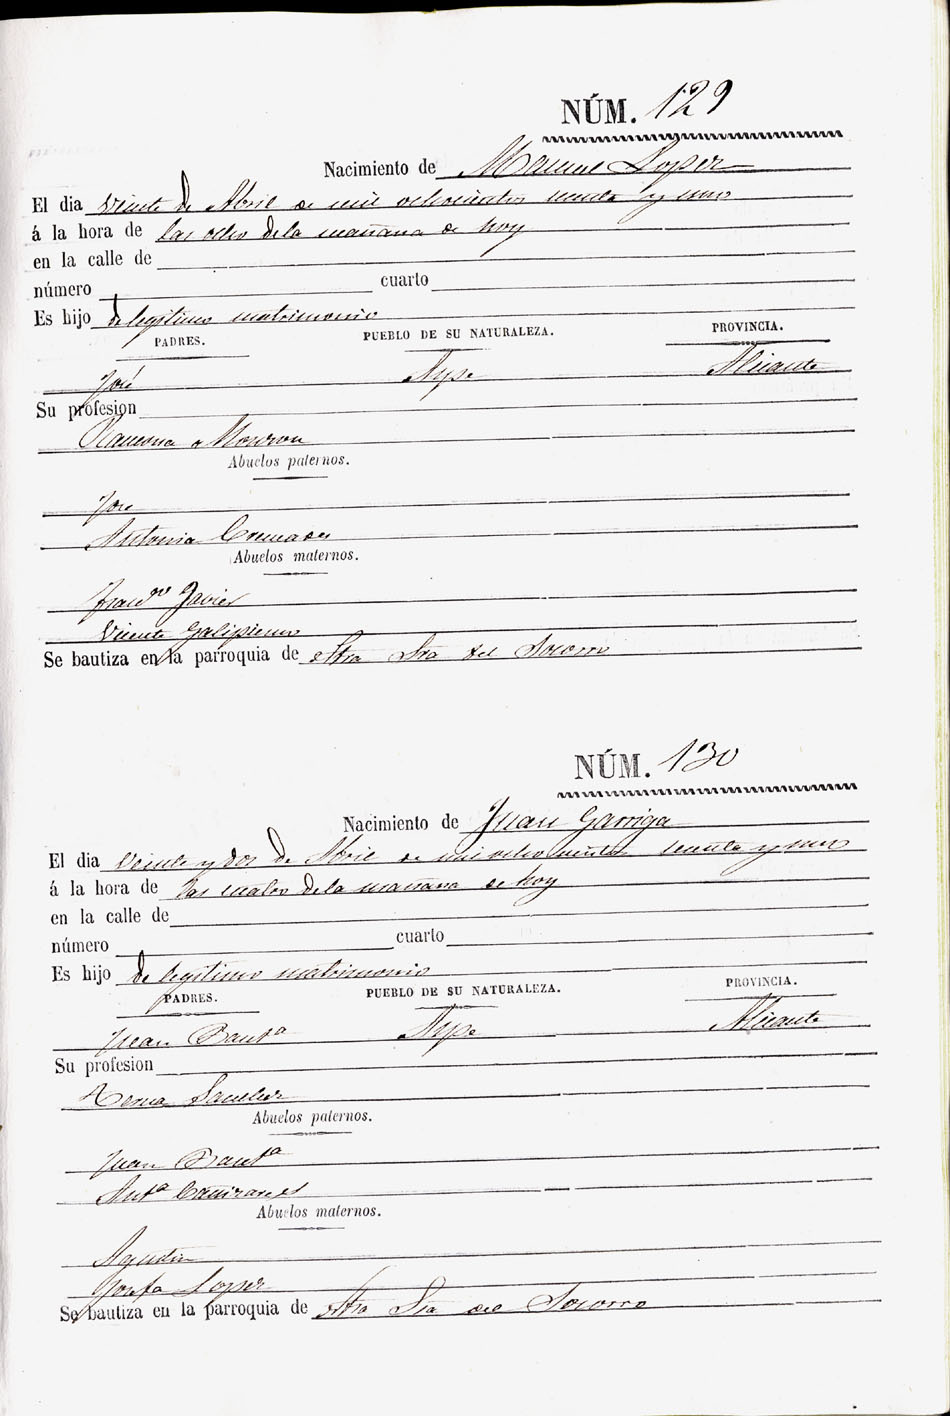 NÚM. 129
Nacimiento de Manuel Lopez
El dia veinte de Abril de mil ochocientos setenta y uno
á la hora de las ocho de la mañana de hoy
en la calle de
número cuarto
Es hijo de legitimo matrimonio
PADRES. PUEBLO DE SU NATURALEZA. PROVINCIA.
José Aspe Alicante
Su profesion
Ramona
Abuelos paternos.
Jose
Antonia Cremades
Abuelos maternos.
Javier
Vicenta Galipienso
Se bautiza en la parroquia de Ntra Sra del Socorro
NÚM. 130
Nacimiento de Juan Garriga
El dia veinte y dos de Abril de mil ochocientos setenta y uno
á la hora de las cuatro de la mañana de hoy
en la calle de
número cuarto
Es hijo de legitimo matrimonio
PADRES. PUEBLO DE SU NATURALEZA. PROVINCIA.
Juan Bautª Aspe Alicante
Su profesion
Abuelos paternos.
Juan Bautª
Antª Cañizares
Abuelos maternos.
Agustin
Josefa Lopez
Se bautiza en la parroquia de Ntra Sra del Socorro